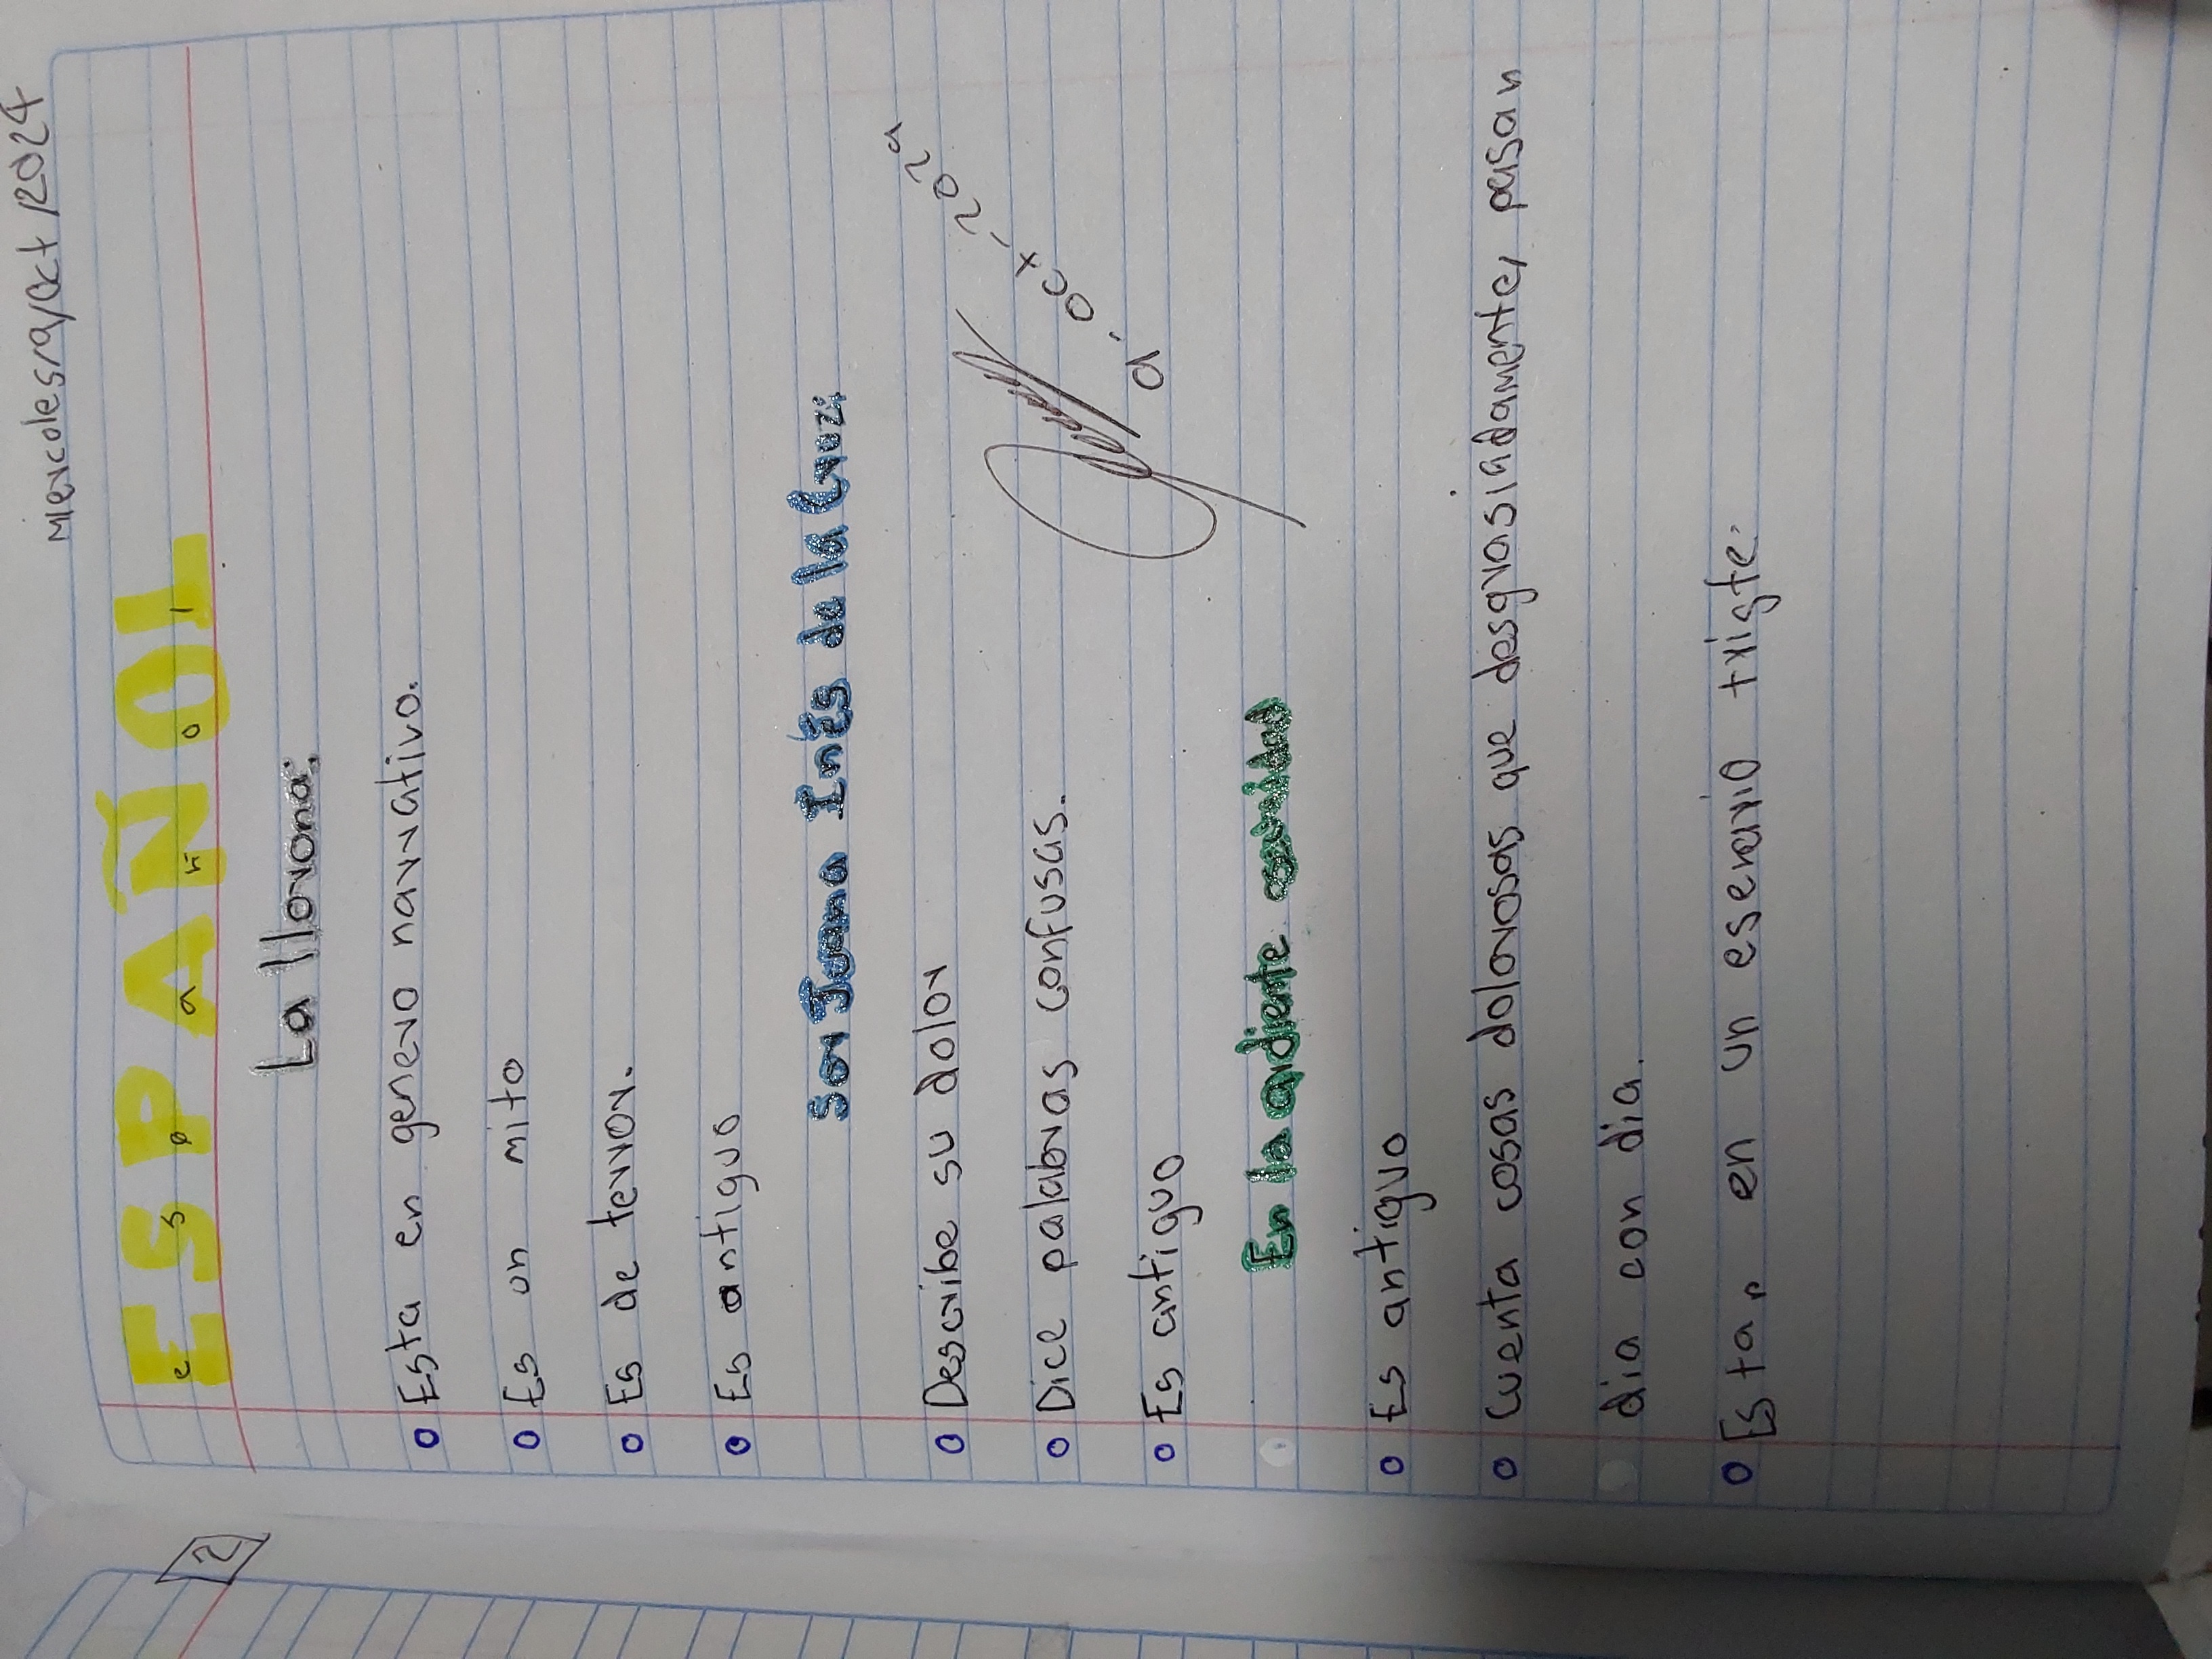 Miercoles/9/Oct/2024
ESPAÑOL
e s p a ñ o l
La llorona:
o Esta en genero narrativo.
o Es un mito
o Es de terror.
o Es antiguo
Sor Juana Inés de la Cruz:
o Describe su dolor
o Dice palabras confusas.
o Es antiguo
9-Oct-2024
En la ardiente oscuridad
o Es antiguo
o Cuenta cosas dolorosas que desgrasiadamente, pasan
dia con dia.
o Esta, en un esenario triste.
2